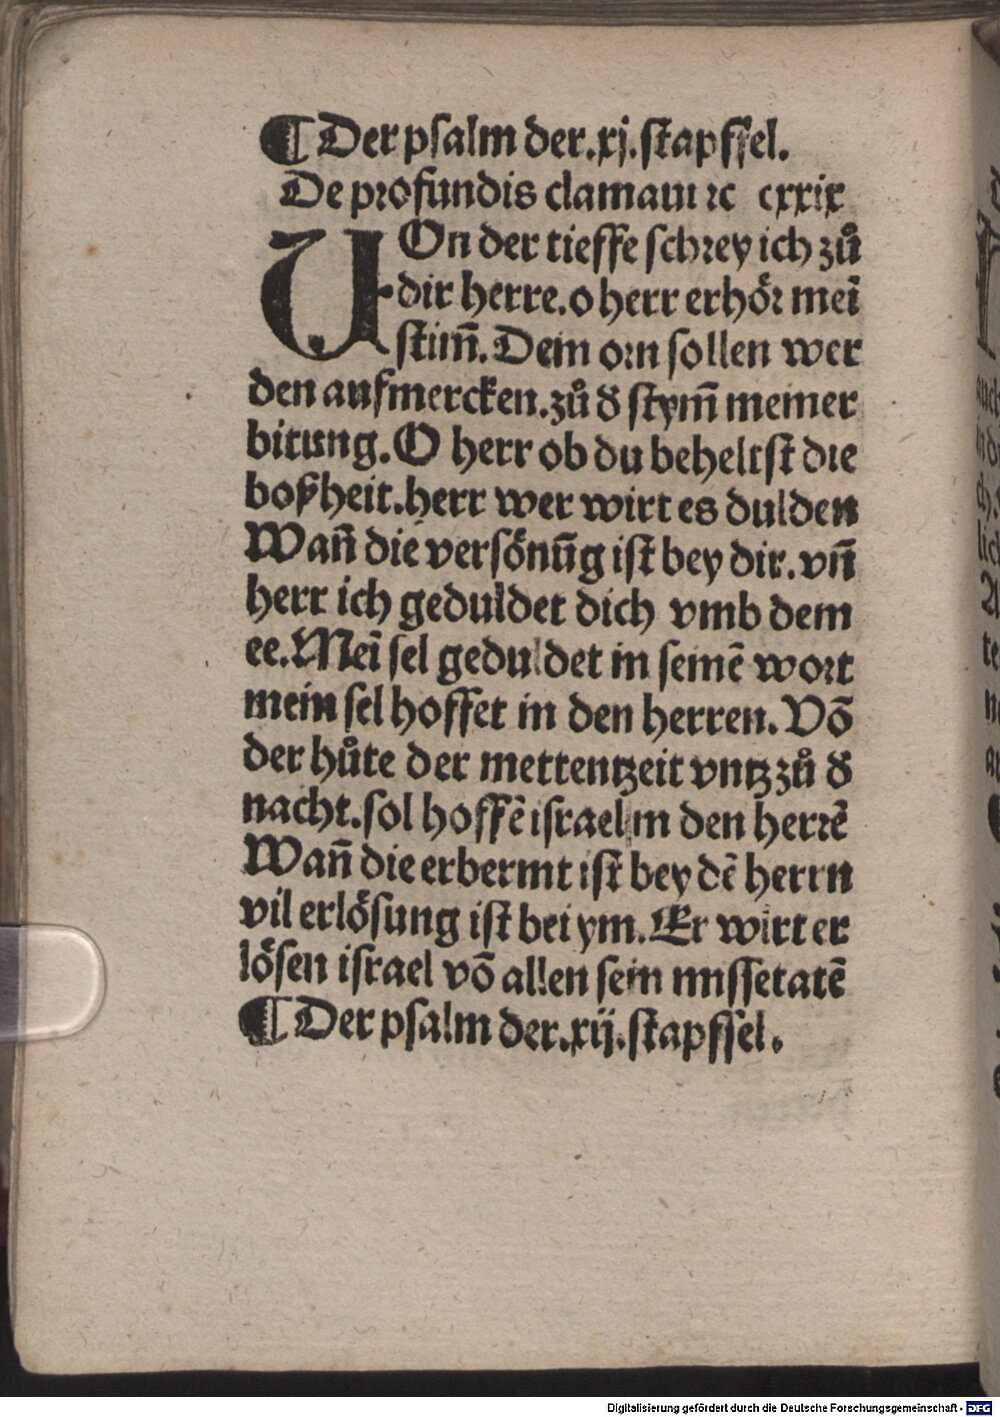 ¶ Der psalm der.xj.stapffel.
De profundis clamaui ꝛc cxxix
VOn der tieffe schrey ich zů
dir herre.o herr erhöꝛ mei᷑
stim̄.Dein oꝛn sollen wer
den aufmercken.zů ď stym̄ meiner
bitung.O herr ob du beheltst die
boßheit.herr wer wirt es dulden
Wañ die versönūg ist bey dir.vñ
herr ich geduldet dich vmb dein
ee.Meī sel geduldet in seinē wort
mein sel hoffet in den herren.Võ
der hůte der mettentzeit vntz zů ď
nacht.sol hoffē israel in den herrē
Wañ die erbermt ist bey dē herrn
vil erlösung ist bei ym.Er wirt er
lösen israel võ allen sein missetatē
¶ Der psalm der.xij.stapffel.
Digitalisierung gefördert durch die Deutsche Forschungsgemeinschaft - DFG